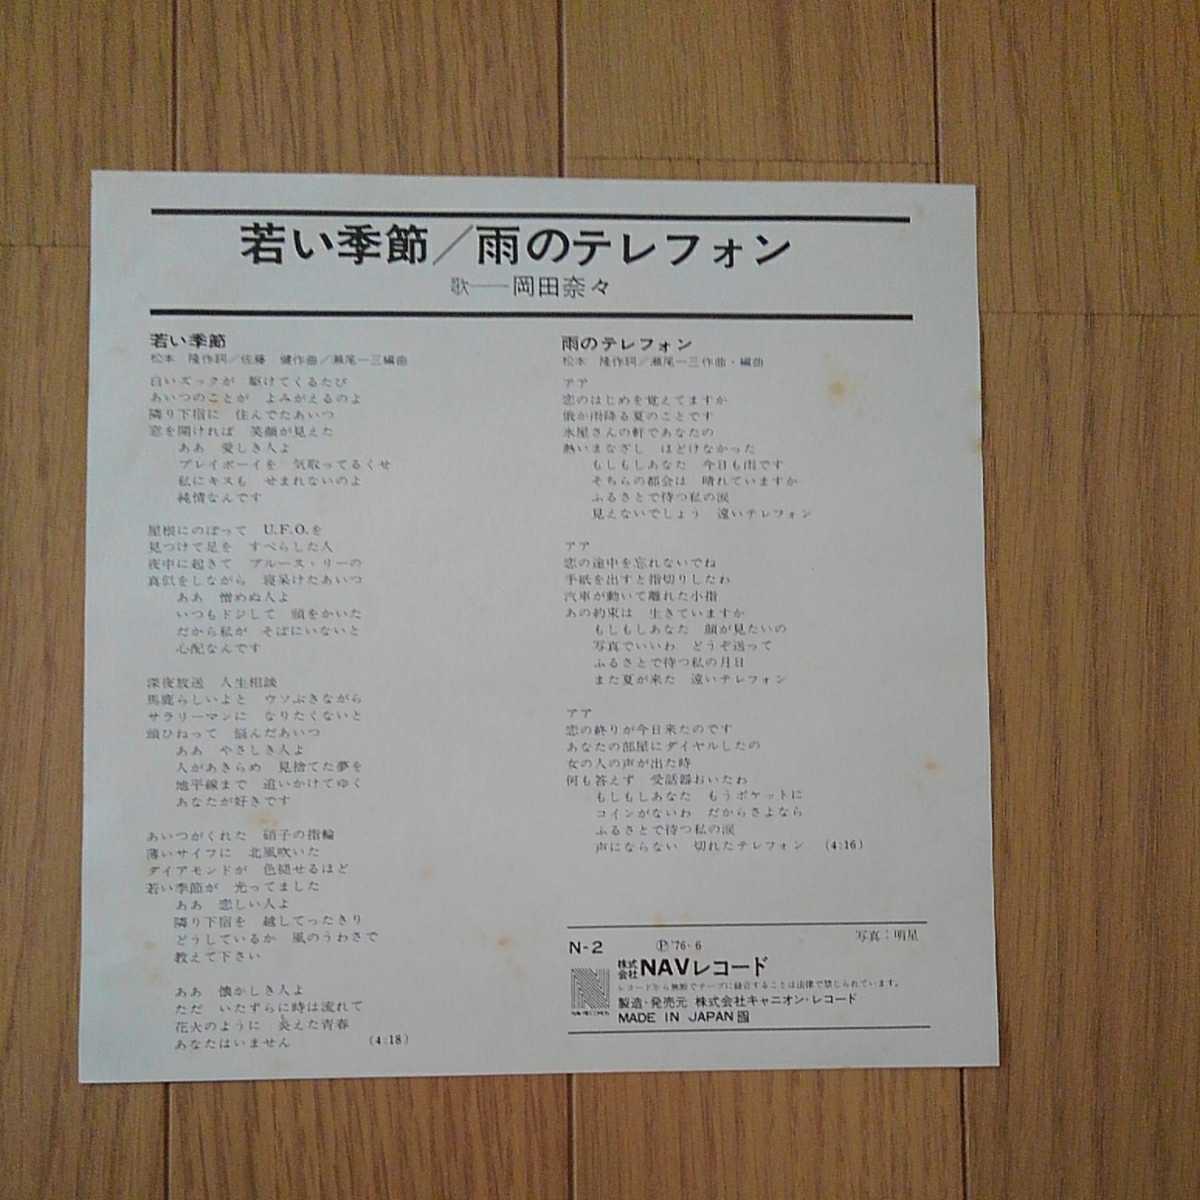 若い季節／雨のテレフォン
歌――岡田奈々
若い季節
松本　隆作詞／佐藤　健作曲／瀬尾一三編曲
白いズックが　駆けてくるたび
あいつのことが　よみがえるのよ
隣り下宿に　住んでたあいつ
窓を開ければ　笑顔が見えた
ああ　愛しき人よ
プレイボーイを　気取ってるくせ
私にキスも　せまれないのよ
純情なんです
屋根にのぼって　U.F.O.を
見つけて足を　すべらした人
夜中に起きて　ブルース・リーの
真似をしながら　寝呆けたあいつ
ああ　憎めぬ人よ
いつもドジして　頭をかいた
だから私が　そばにいないと
心配なんです
深夜放送　人生相談
馬鹿らしいよと　ウソぶきながら
サラリーマンに　なりたくないと
頭ひねって　悩んだあいつ
ああ　やさしき人よ
人があきらめ　見捨てた夢を
地平線まで　追いかけてゆく
あなたが好きです
あいつがくれた　硝子の指輪
薄いサイフに　北風吹いた
ダイアモンドが　色褪せるほど
若い季節が　光ってました
ああ　恋しい人よ
隣り下宿を　越してったきり
どうしているか　風のうわさで
教えて下さい
ああ　懐かしき人よ
ただ　いたずらに時は流れて
花火のように　炎えた青春
あなたはいません　(4:18)
雨のテレフォン
松本　隆作詞／瀬尾一三作曲・編曲
アア
恋のはじめを覚えてますか
俄か雨降る夏のことです
氷屋さんの軒であなたの
熱いまなざし　ほどけなかった
もしもしあなた　今日も雨です
そちらの都会は　晴れていますか
ふるさとで待つ私の涙
見えないでしょう　遠いテレフォン
アア
恋の途中を忘れないでね
手紙を出すと指切りしたわ
汽車が動いて離れた小指
あの約束は　生きていますか
もしもしあなた　顔が見たいの
写真でいいわ　どうぞ送って
ふるさとで待つ私の月日
また夏が来た　遠いテレフォン
アア
恋の終りが今日来たのです
あなたの部屋にダイヤルしたの
女の人の声が出た時
何も答えず　受話器おいたわ
もしもしあなた　もうポケットに
コインがないわ　だからさよなら
ふるさとで待つ私の涙
声にならない　切れたテレフォン　(4:16)
写真：明星
N-2　Ⓟ'76・6
株式会社NAVレコード
レコードから無断でテープに録音することは法律で禁じられています。
製造・発売元　株式会社キャニオン・レコード
MADE IN JAPAN
NAV RECORDS